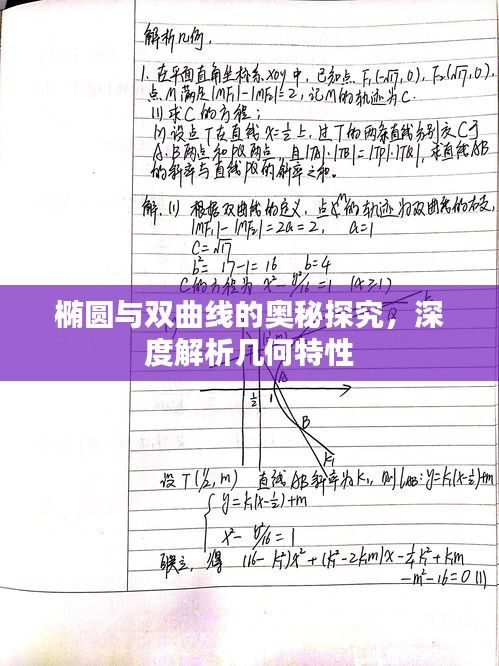 解析几何.
1. 在平面直角坐标系xoy中, 已知点 F₁(-√17,0), F₂(√17,0),
点M满足|MF₁|-|MF₂|=2, 记M的轨迹为C.
(1) 求C的方程;
(2) 设点T在直线 x=½上, 过T的两条直线分别交C于
A.B两点和P.Q两点, 且|TA|·|TB|=|TP|·|TQ|, 求直线AB
的斜率与直线PQ的斜率之和.
解. (1) 根据双曲线的定义, 点M的轨迹为双曲线的右支,
|MF₁|-|MF₂|=2a=2, a=1
C=√17
b²=17-1=16 b=4
C的方程为 x²-y²/16=1 (x≥1)
椭圆与双曲线的奥秘探究，深
度解析几何特性
½ 1 A
B
K₁
设T(½,m) 直线AB斜率为k₁, 则lAB:y=k₁(x-½)+m
y=k₁(x-½)+m
x²-y²/16=1
联立, 得 (16-k₁²)x²+(k₁²-2k₁m)x-¼k₁²+k₁m
-m²-16=0 (1)